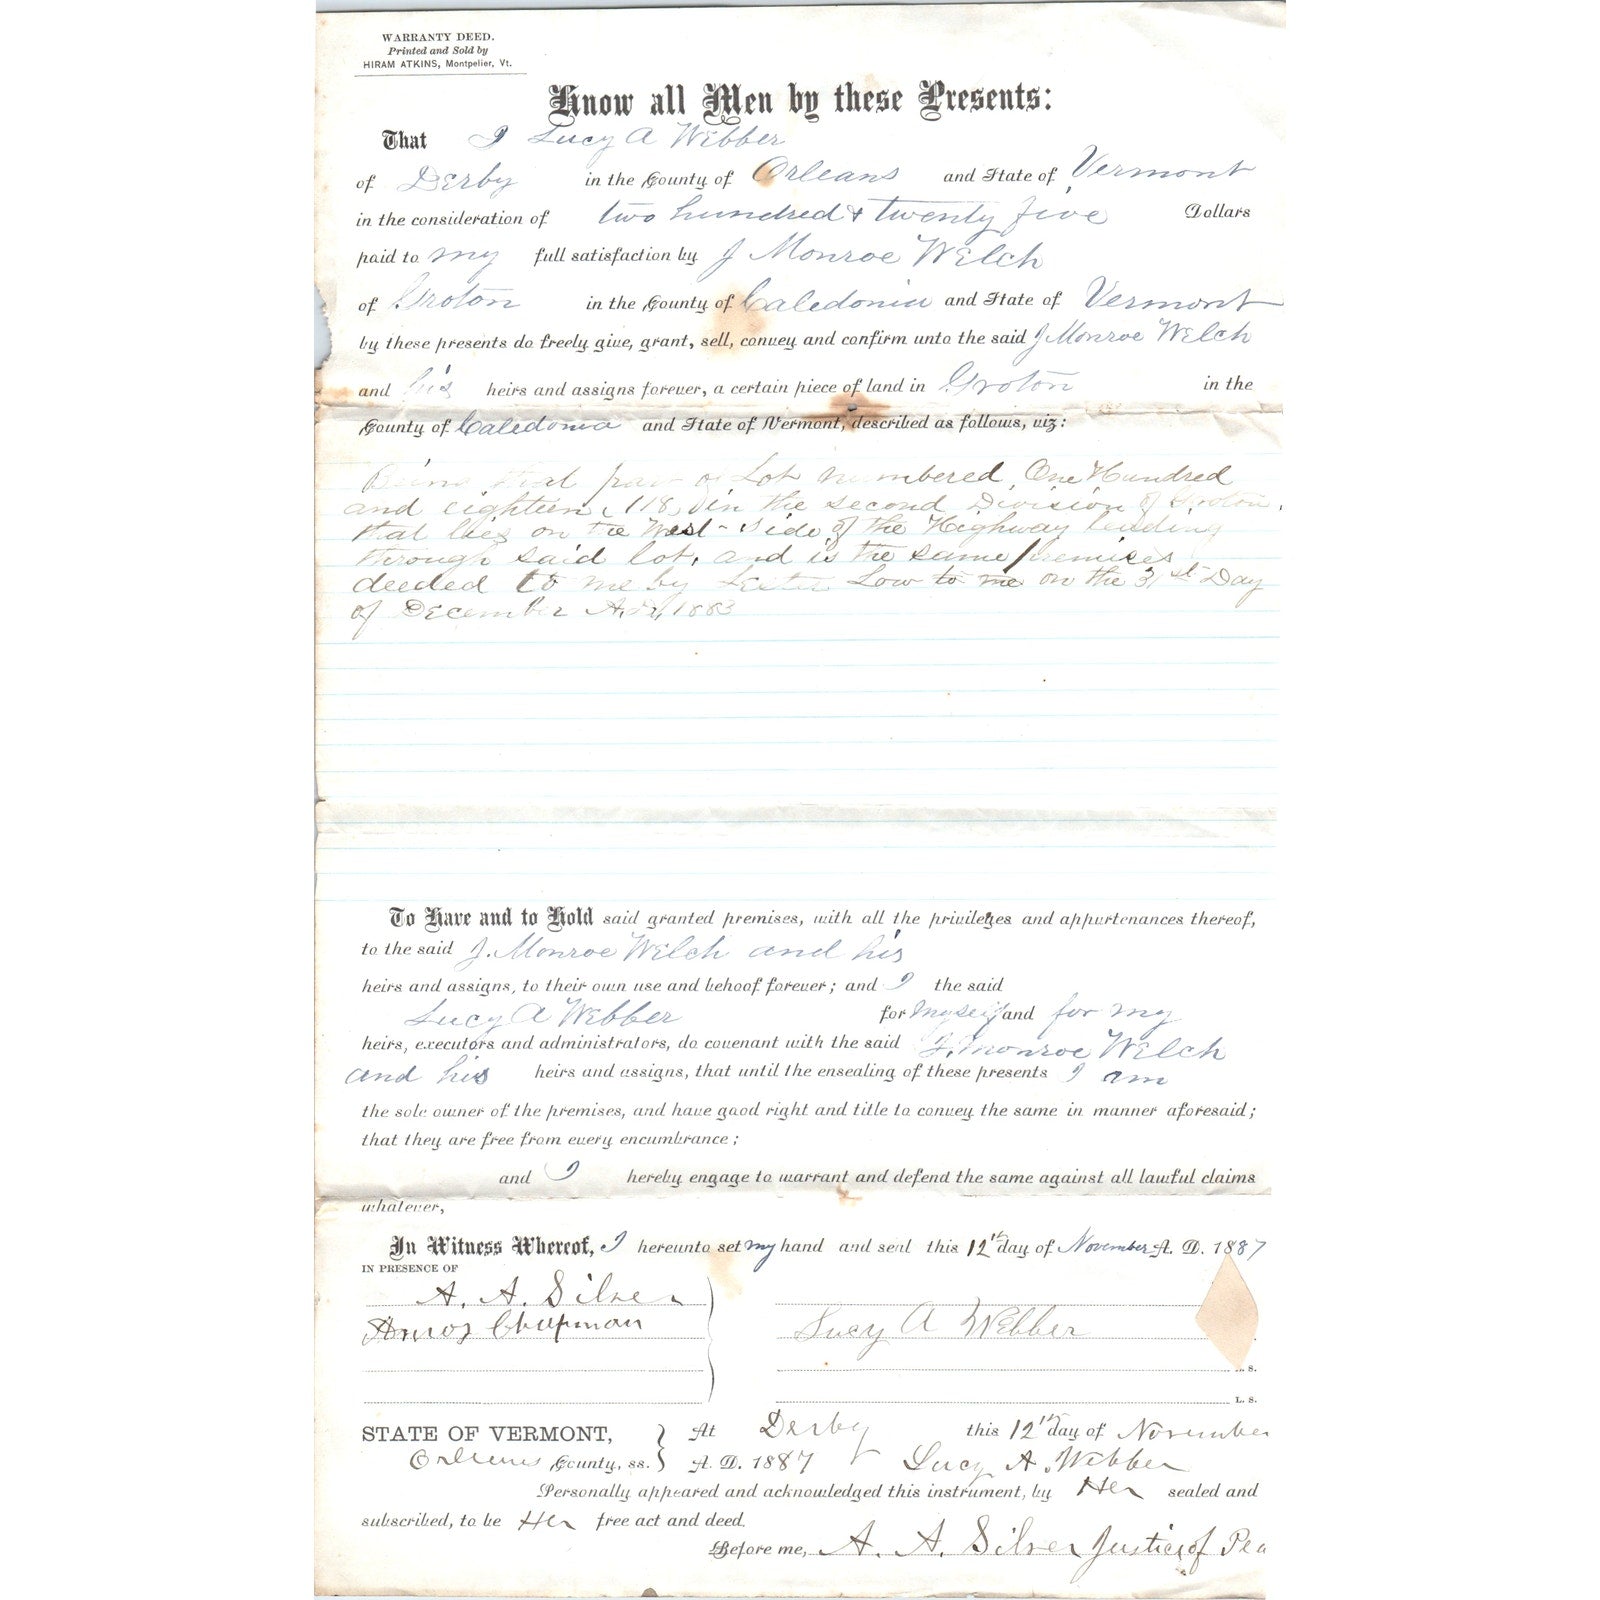 WARRANTY DEED.
Printed and Sold by
HIRAM ATKINS, Montpelier, Vt.
Know all Men by these Presents:
That I Lucy A Webber
of Derby in the County of Orleans and State of Vermont
in the consideration of two hundred & twenty five Dollars
paid to my full satisfaction by J Monroe Welch
of Groton in the County of Caledonia and State of Vermont
by these presents do freely give, grant, sell, convey and confirm unto the said J Monroe Welch
and his heirs and assigns forever, a certain piece of land in Groton in the
County of Caledonia and State of Vermont, described as follows, viz:
Being that part of Lot numbered One Hundred
and eighteen (118) in the second Division of Groton,
that lies on the West Side of the Highway leading
through said lot, and is the same premises
deeded to me by Low to me on the 31st Day
of December A.D. 1883
To Have and to Hold said granted premises, with all the privileges and appurtenances thereof,
to the said J. Monroe Welch and his
heirs and assigns, to their own use and behoof forever; and I the said
Lucy A Webber for myself and for my
heirs, executors and administrators, do covenant with the said J. Monroe Welch
and his heirs and assigns, that until the ensealing of these presents I am
the sole owner of the premises, and have good right and title to convey the same in manner aforesaid;
that they are free from every encumbrance;
and I hereby engage to warrant and defend the same against all lawful claims
whatever,
In Witness Whereof, I hereunto set my hand and seal this 12th day of November A. D. 1887
IN PRESENCE OF
A. A. Silver
Amos Chapman
Lucy A Webber
L. S.
L. S.
STATE OF VERMONT, At Derby this 12th day of November
Orleans County, ss. A. D. 1887 Lucy A. Webber
Personally appeared and acknowledged this instrument, by Her sealed and
subscribed, to be Her free act and deed.
Before me, A. A. Silver Justice of Pea